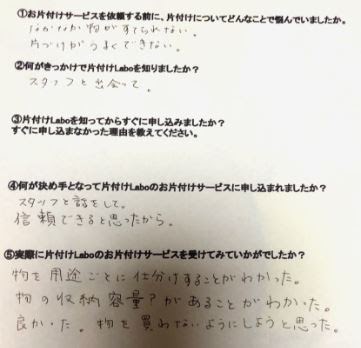 ①お片付けサービスを依頼する前に、片付けについてどんなことで悩んでいましたか。
なかなか物がすてられない。
片づけがうまくできない。
②何がきっかけで片付けLaboを知りましたか？
スタッフと出会って。
③片付けLaboを知ってからすぐに申し込みましたか？
すぐに申し込まなかった理由を教えてください。
④何が決め手となって片付けLaboのお片付けサービスに申し込まれましたか？
スタッフと話をして。
信頼できると思ったから。
⑤実際に片付けLaboのお片付けサービスを受けてみていかがでしたか？
物を用途ごとに仕分けすることがわかった。
物の収納容量？があることがわかった。
良かった。物を買わないようにしようと思った。